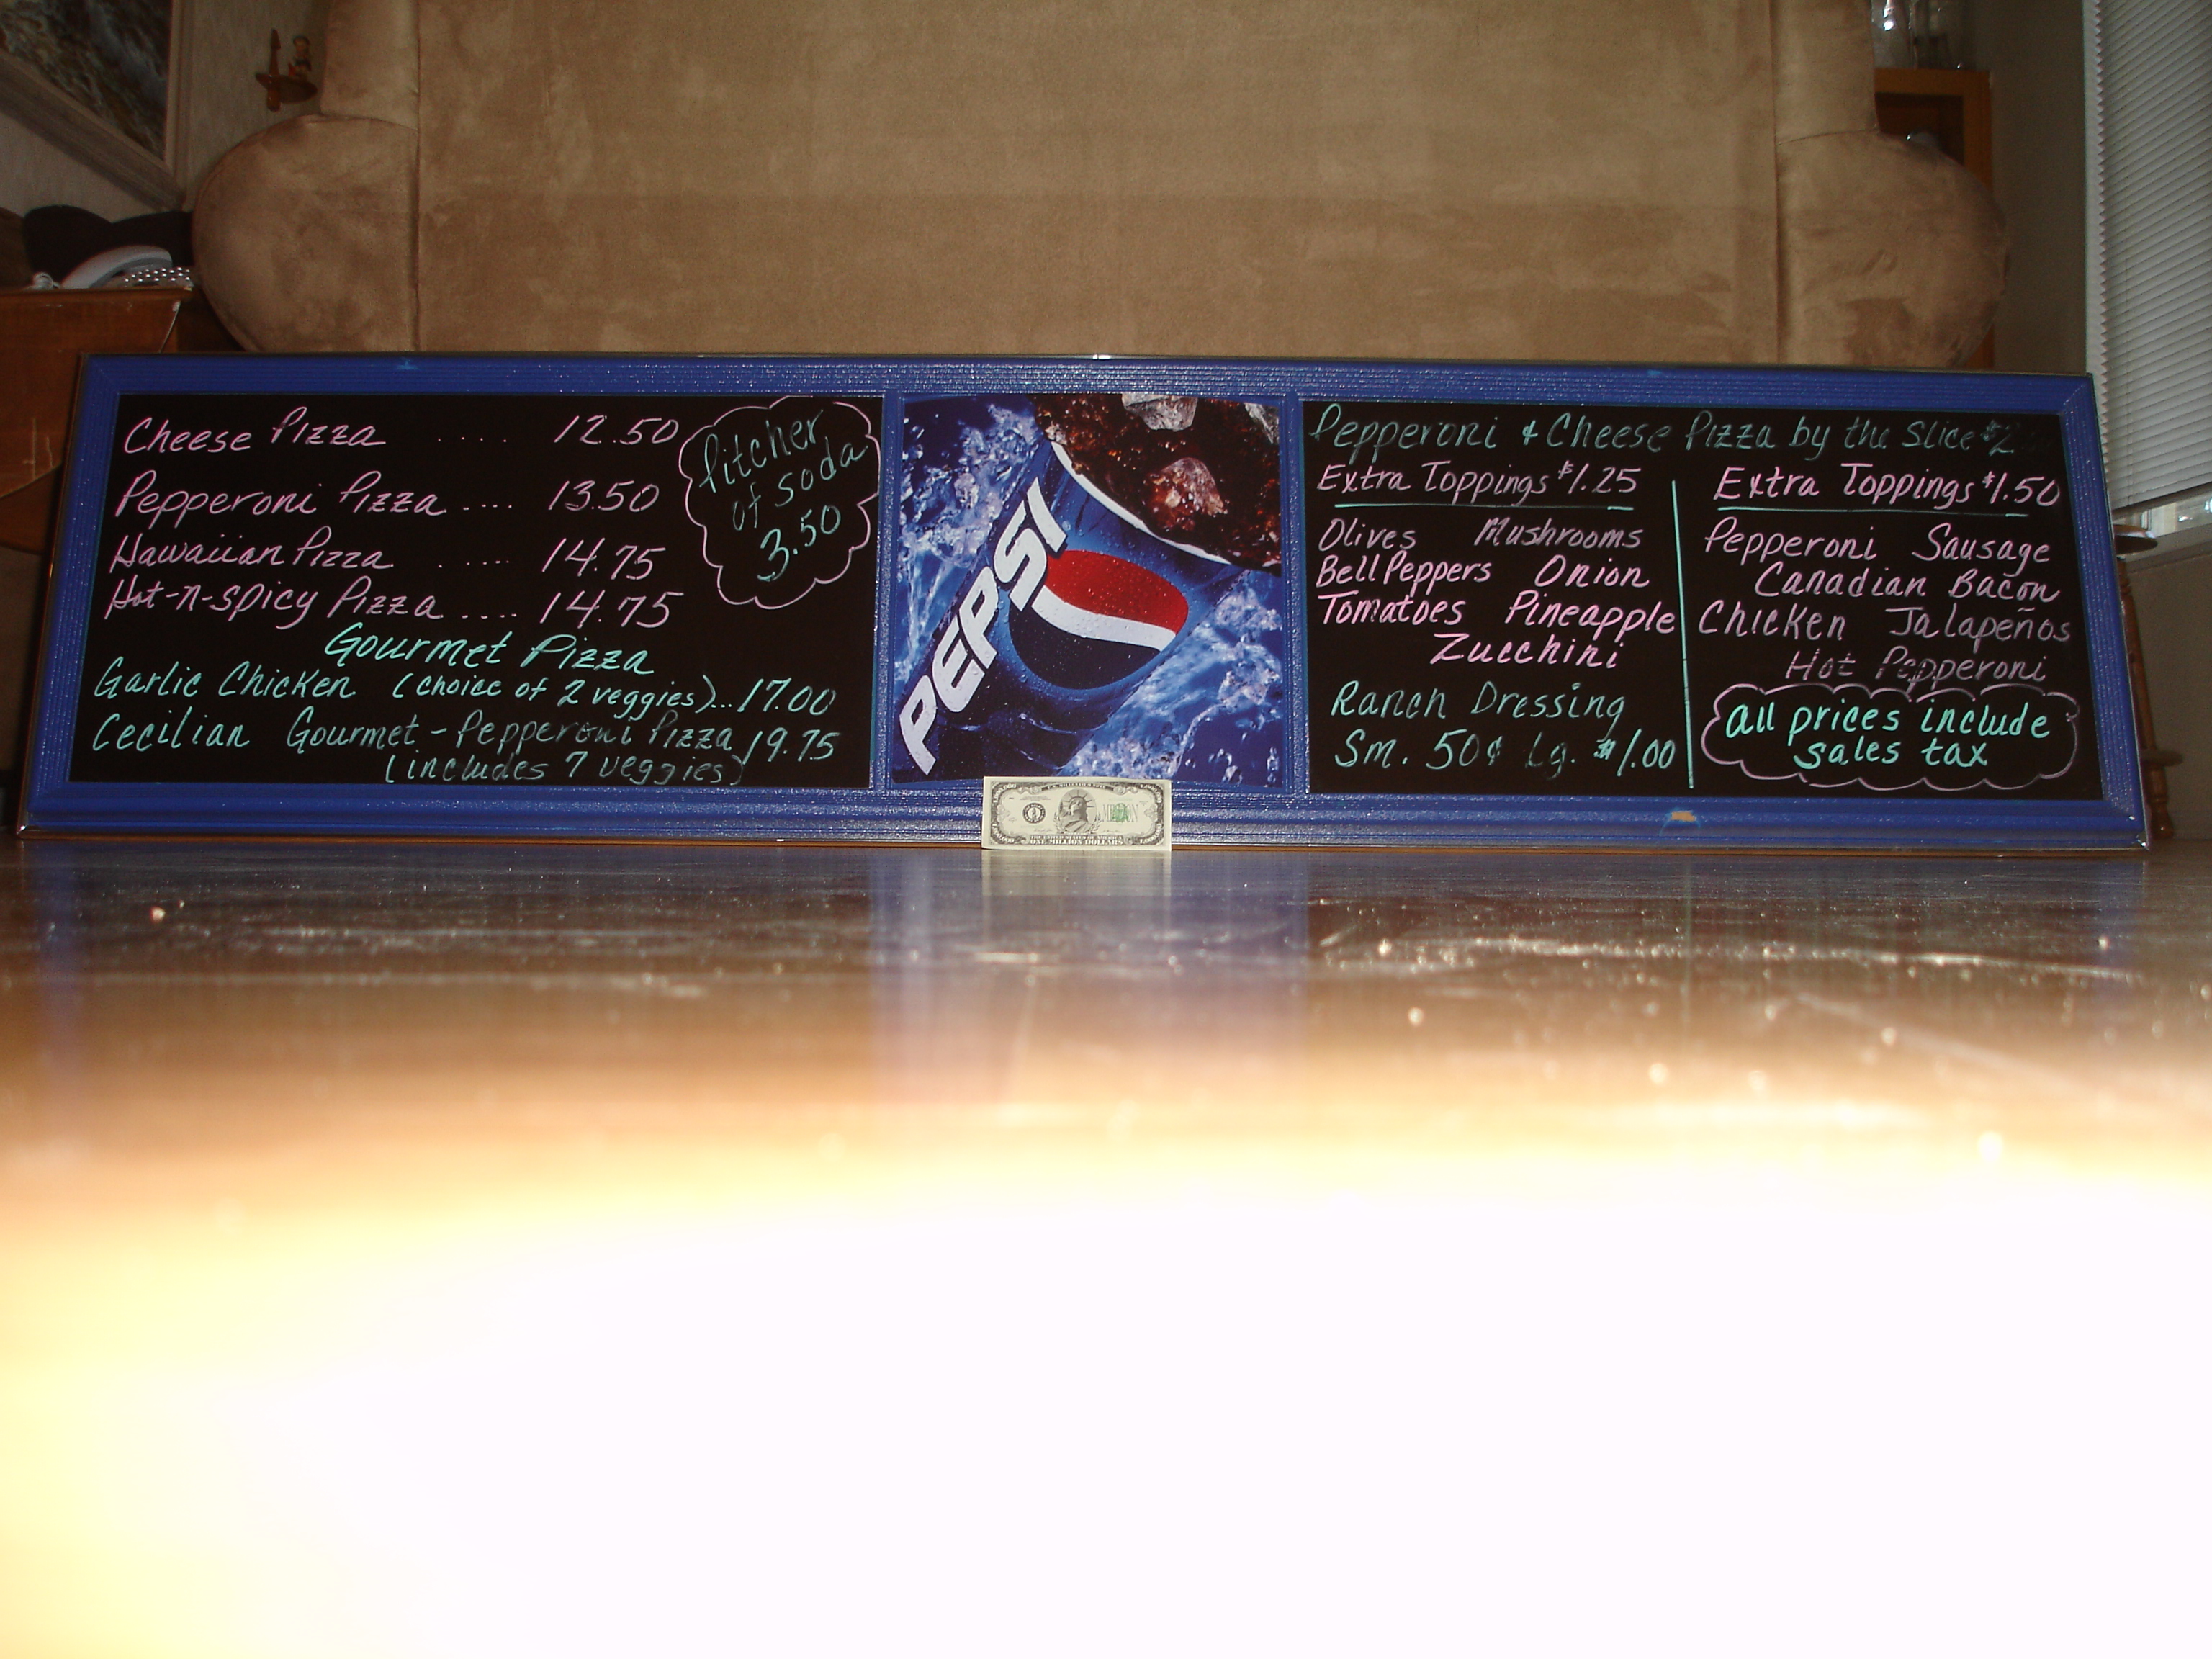 Cheese Pizza ..... 12.50
Pepperoni Pizza .... 13.50
Hawaiian Pizza ..... 14.75
Hot-n-spicy Pizza .... 14.75
Pitcher
of soda
3.50
Gourmet Pizza
Garlic Chicken (choice of 2 veggies)...17.00
Cecilian Gourmet - Pepperoni Pizza 19.75
(includes 7 veggies)
PEPSI
Pepperoni & Cheese Pizza by the Slice $2
Extra Toppings $1.25
Olives Mushrooms
Bell Peppers Onion
Tomatoes Pineapple
Zucchini
Ranch Dressing
Sm. 50¢ Lg. $1.00
Extra Toppings $1.50
Pepperoni Sausage
Canadian Bacon
Chicken Jalapeños
Hot Pepperoni
all prices include
sales tax
ONE MILLION DOLLARS